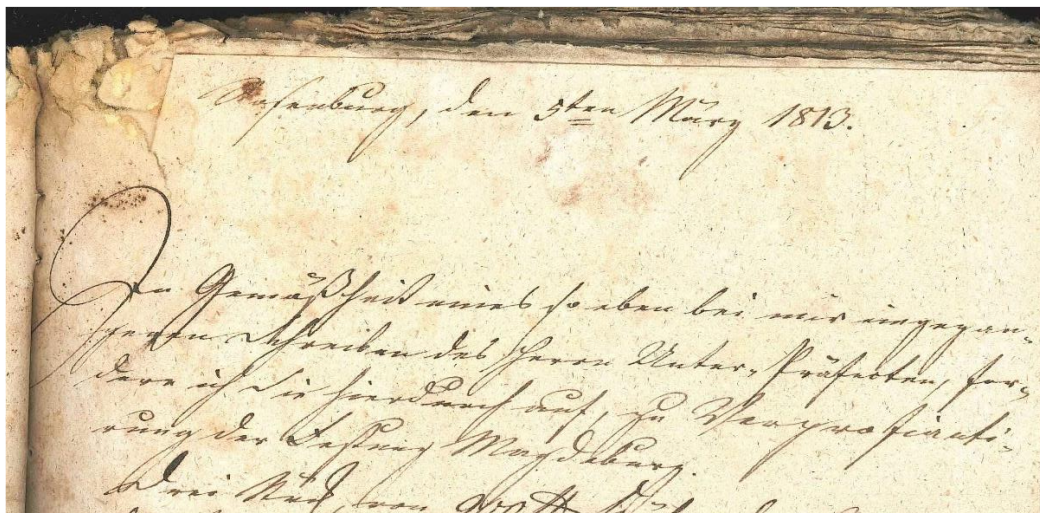 Rosenburg, den 5ten März 1813.
In Gemäßheit eines so eben bei mir eingegan-
genen Schreiben des Herrn Unter-Präfecten, for-
dere ich Sie hierdurch auf, zu Verprovianti-
rung der Festung Magdeburg.
Drei Stück, von